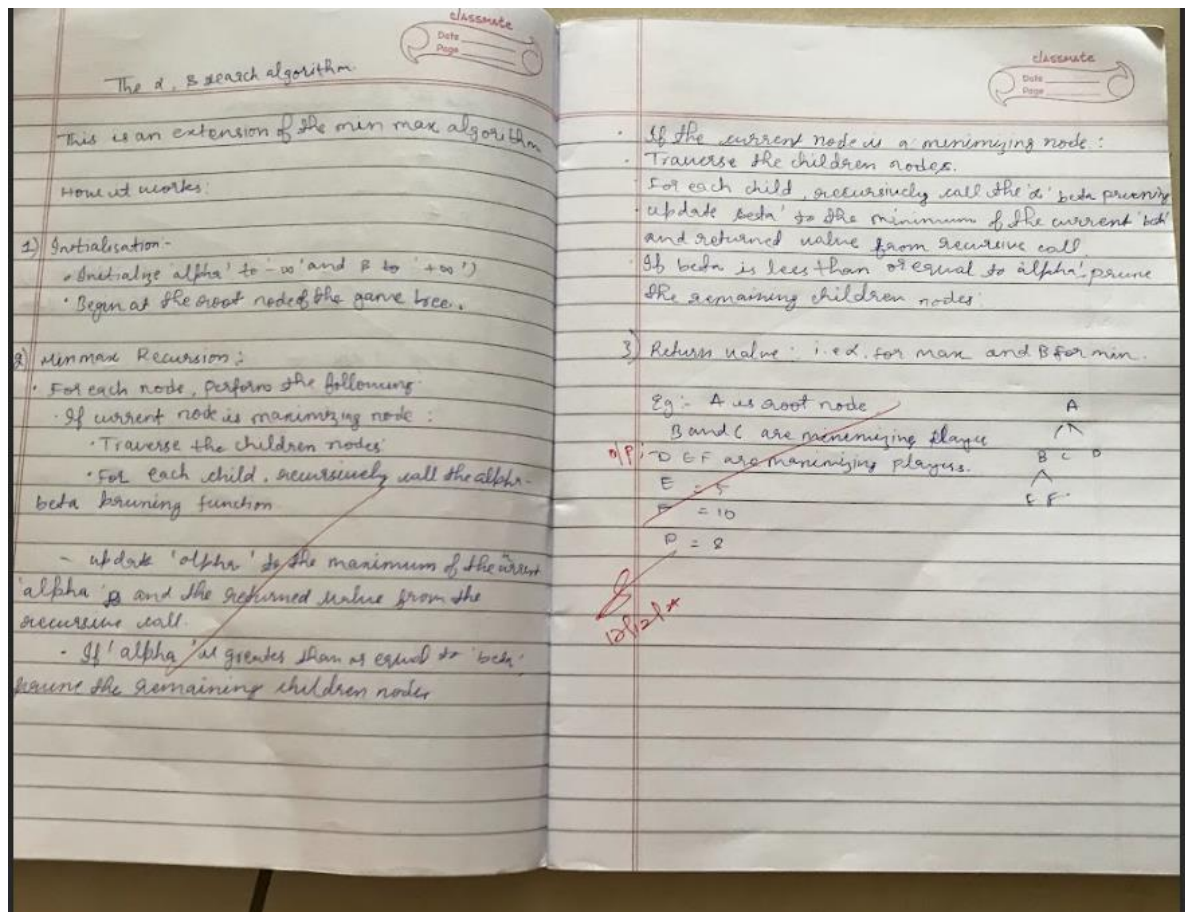 classmate
Date
Page
The α, B search algorithm.
This is an extension of the min max algorithm
How it works:
1) Initialisation -
• Initialize alpha' to '-∞' and B to '+∞')
• Begin at the root node of the game tree.
2) Minmax Recursion:
• For each node, perform the following.
• If current node is maximizing node:
• Traverse the children nodes
• For each child, recursively call the alpha-
beta pruning function
- update 'alpha' to the maximum of the current
'alpha' and the returned value from the
recursive call.
• If 'alpha' is greater than or equal to 'beta',
prune the remaining children nodes
classmate
Date
Page
• If the current node is a minimizing node:
• Traverse the children nodes.
• For each child, recursively call the 'α' beta pruning
• update beta' to the minimum of the current 'beta'
and returned value from recursive call
• If beta is less than or equal to alpha', prune
the remaining children nodes.
3) Return value: i.e α for max and B for min.
Eg:- A is root node
B and C are minimizing player
O/P:- D E F are maximizing players.
E = 5
F = 10
D = 8
A
B C D
E F